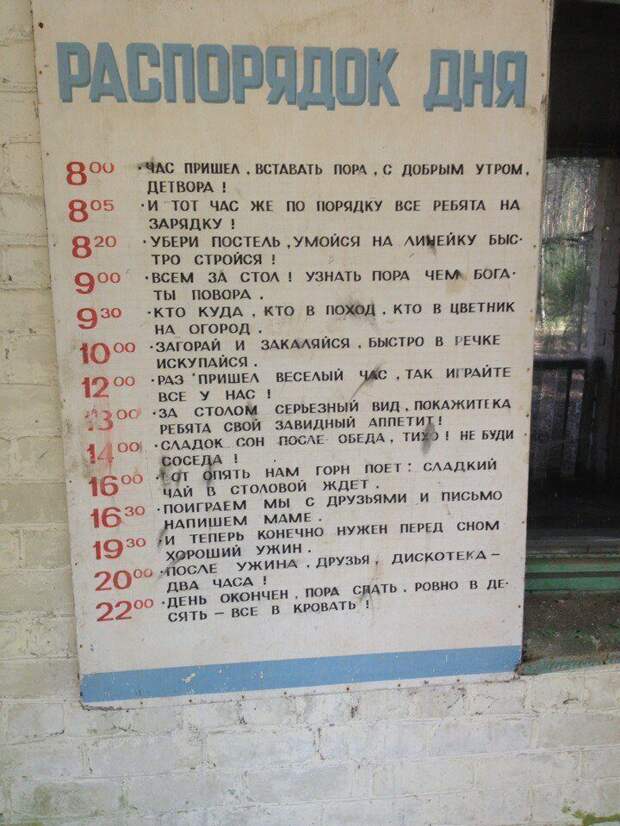 РАСПОРЯДОК ДНЯ
8 00 · ЧАС ПРИШЕЛ , ВСТАВАТЬ ПОРА , С ДОБРЫМ УТРОМ,
ДЕТВОРА !
8 05 · И ТОТ ЧАС ЖЕ ПО ПОРЯДКУ ВСЕ РЕБЯТА НА
ЗАРЯДКУ !
8 20 · УБЕРИ ПОСТЕЛЬ , УМОЙСЯ НА ЛИНЕЙКУ БЫС-
ТРО СТРОЙСЯ !
9 00 · ВСЕМ ЗА СТОЛ ! УЗНАТЬ ПОРА ЧЕМ БОГА-
ТЫ ПОВОРА .
9 30 · КТО КУДА , КТО В ПОХОД , КТО В ЦВЕТНИК
НА ОГОРОД .
10 00 · ЗАГОРАЙ И ЗАКАЛЯЙСЯ , БЫСТРО В РЕЧКЕ
ИСКУПАЙСЯ .
12 00 · РАЗ ПРИШЕЛ ВЕСЕЛЫЙ ЧАС , ТАК ИГРАЙТЕ
ВСЕ У НАС !
13 00 · ЗА СТОЛОМ СЕРЬЕЗНЫЙ ВИД , ПОКАЖИТЕКА
РЕБЯТА СВОЙ ЗАВИДНЫЙ АППЕТИТ !
14 00 · СЛАДОК СОН ПОСЛЕ ОБЕДА , ТИХО ! НЕ БУДИ
СОСЕДА !
16 00 · ВОТ ОПЯТЬ НАМ ГОРН ПОЕТ : СЛАДКИЙ
ЧАЙ В СТОЛОВОЙ ЖДЕТ .
16 30 · ПОИГРАЕМ МЫ С ДРУЗЬЯМИ И ПИСЬМО
НАПИШЕМ МАМЕ .
19 30 · И ТЕПЕРЬ КОНЕЧНО НУЖЕН ПЕРЕД СНОМ
ХОРОШИЙ УЖИН .
20 00 · ПОСЛЕ УЖИНА , ДРУЗЬЯ , ДИСКОТЕКА –
ДВА ЧАСА !
22 00 · ДЕНЬ ОКОНЧЕН , ПОРА СПАТЬ , РОВНО В ДЕ-
СЯТЬ – ВСЕ В КРОВАТЬ !